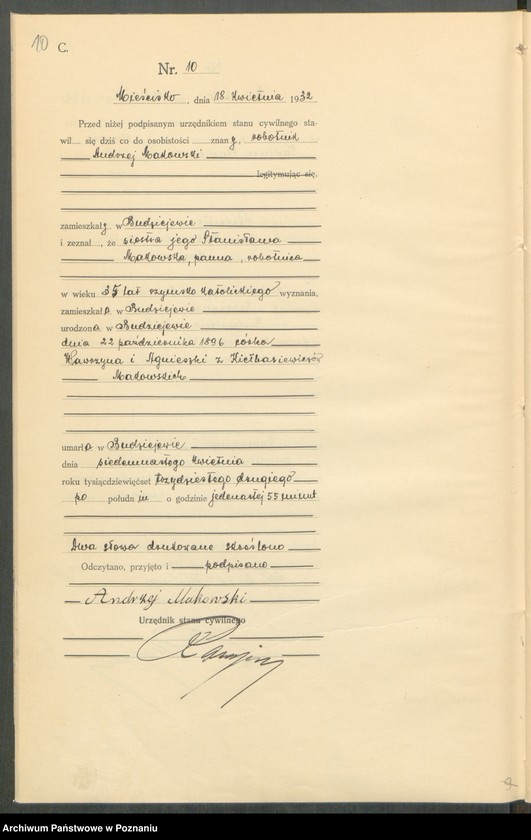 10 C.
Nr. 10
Mieścisko, dnia 18 kwietnia 1932
Przed niżej podpisanym urzędnikiem stanu cywilnego sta-
wił się dziś co do osobistości znany, robotnik
Andrzej Makowski
legitymując się,
zamieszkały w Budziejewie
i zeznał, że siostra jego Stanisława
Makowska, panna, robotnica
w wieku 35 lat rzymsko katolickiego wyznania,
zamieszkała w Budziejewie
urodzona w Budziejewie
dnia 22 października 1896 córka
Wawrzyna i Agnieszki z Kiełbasiewiczów
Makowskich
umarła w Budziejewie
dnia siedemnastego kwietnia
roku tysiącdziewięćset trzydziestego drugiego
po południu o godzinie jedenastej 55 minut
Dwa słowa drukowane skreślono
Odczytano, przyjęto i podpisano
Andrzej Makowski
Urzędnik stanu cywilnego
Archiwum Państwowe w Poznaniu